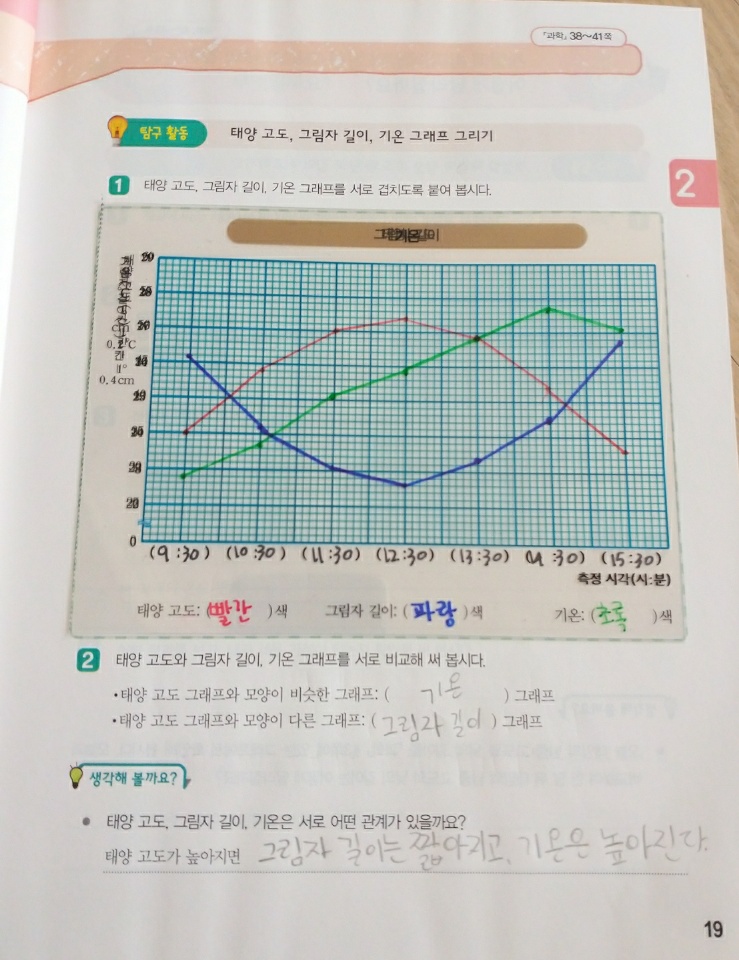 『과학』 38~41쪽
탐구 활동 태양 고도, 그림자 길이, 기온 그래프 그리기
2
1 태양 고도, 그림자 길이, 기온 그래프를 서로 겹치도록 붙여 봅시다.
0.4cm
0
(9:30) (10:30) (11:30) (12:30) (13:30) (14:30) (15:30)
측정 시각(시:분)
태양 고도: (빨간 )색 그림자 길이: ( 파랑 )색 기온: (초록 )색
2 태양 고도와 그림자 길이, 기온 그래프를 서로 비교해 써 봅시다.
•태양 고도 그래프와 모양이 비슷한 그래프: ( 기온 ) 그래프
•태양 고도 그래프와 모양이 다른 그래프: ( 그림자 길이 ) 그래프
생각해 볼까요?
● 태양 고도, 그림자 길이, 기온은 서로 어떤 관계가 있을까요?
태양 고도가 높아지면 그림자 길이는 짧아지고, 기온은 높아진다.
19